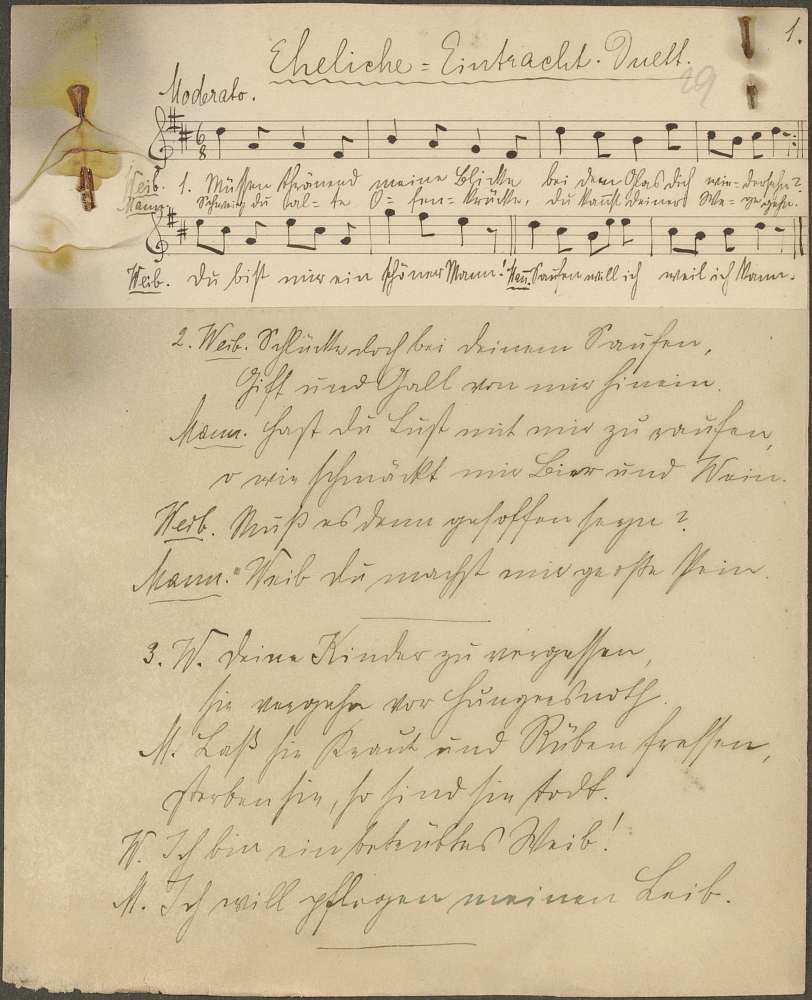 1.
Eheliche=Eintracht. Duett.
29
Moderato.
6
8
Weib. 1. Müssen thränend meine Blicke bei dem Glas dich wie=dersehn?
Mann. Schweig du al=te O=fen=krücke, du kannst deiner We=ge gehn.
Weib. Du bist mir ein schöner Mann! Man. Saufen will ich weil ich kann.
2. Weib. Schlücke doch bei deinem Saufen,
Gift und Gall von mir hinein.
Mann. Hast du Lust mit mir zu raufen,
o wie schmäckt mir Bier und Wein.
Weib. Muß es denn gesoffen seyn?
Mann. Weib du machst mir große Pein.
3. W. Deine Kinder zu vergessen,
sie vergehn vor Hungersnoth.
M. Laß sie Kraut und Rüben fressen,
sterben sie, so sind sie todt.
W. Ich bin ein betrübtes Weib!
M. Ich will pflegen meinen Leib.